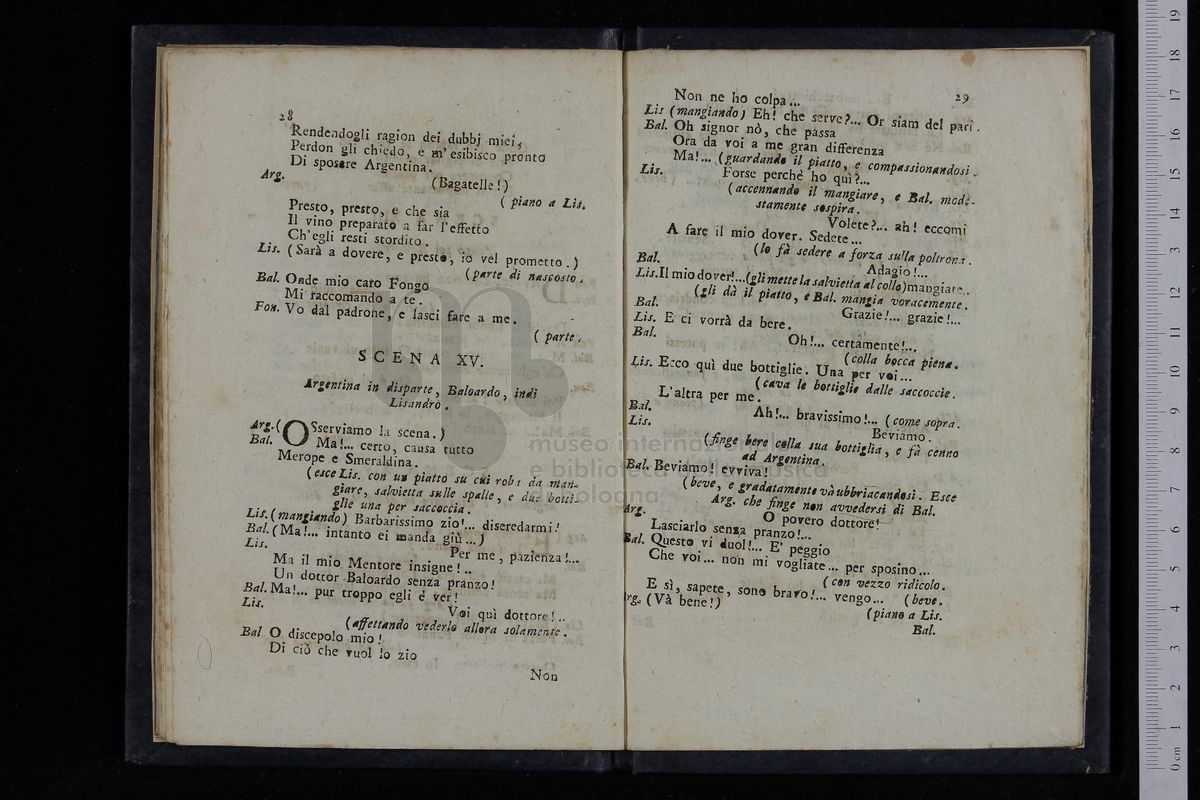 28
Rendendogli ragion dei dubbj miei,
Perdon gli chiedo, e m'esibisco pronto
Di sposare Argentina.
Arg. (Bagatelle!)
( piano a Lis.
Presto, presto, e che sia
Il vino preparato a far l'effetto
Ch'egli resti stordito.
Lis. (Sarà a dovere, e presto, io vel prometto.)
(parte di nascosto.
Bal. Onde mio caro Fongo
Mi raccomando a te.
Fon. Vo dal padrone, e lasci fare a me.
( parte.
SCENA XV.
Argentina in disparte, Baloardo, indi
Lisandro.
Arg. (OSserviamo la scena.)
Bal. Ma!... certo, causa tutto
Merope e Smeraldina.
(esce Lis. con un piatto su cui roba da man-
giare, salvietta sulle spalle, e due botti-
glie una per saccoccia.
Lis. (mangiando) Barbarissimo zio!... diseredarmi!
Bal. (Ma!... intanto ei manda giù...)
Lis. Per me, pazienza!...
Ma il mio Mentore insigne!..
Un dottor Baloardo senza pranzo!
Bal. Ma!... pur troppo egli è ver!
Lis. Voi quì dottore!..
(affettando vederlo allora solamente.
Bal O discepolo mio!
Di ciò che vuol lo zio
Non
29
Non ne ho colpa...
Lis (mangiando) Eh! che serve?... Or siam del pari.
Bal. Oh signor nò, che passa
Ora da voi a me gran differenza
Ma!... (guardando il piatto, e compassionandosi.
Lis. Forse perchè ho quì?...
(accennando il mangiare, e Bal. mode-
stamente sospira.
Volete?... ah! eccomi
A fare il mio dover. Sedete...
(lo fà sedere a forza sulla poltrona.
Bal. Adagio!...
Lis. Il mio dover!...(gli mette la salvietta al collo) mangiate..
(gli dà il piatto, e Bal. mangia voracemente.
Bal. Grazie!... grazie!...
Lis. E ci vorrà da bere.
Bal. Oh!... certamente!...
(colla bocca piena.
Lis. Ecco quì due bottiglie. Una per voi...
(cava le bottiglie dalle saccoccie.
L'altra per me.
Bal. Ah!... bravissimo!... (come sopra.
Lis. Beviamo.
(finge bere colla sua bottiglia, e fà cenno
ad Argentina.
Bal. Beviamo! evviva!
(beve, e gradatamente và ubbriacandosi. Esce
Arg. che finge non avvedersi di Bal.
Arg. O povero dottore!
Lasciarlo senza pranzo!...
Bal. Questo vi duol!... E' peggio
Che voi... non mi vogliate... per sposino...
(con vezzo ridicolo.
E sì, sapete, sono bravo!... vengo... (beve.
rg. (Và bene!)
(piano a Lis.
Bal.
museo internazionale
e biblioteca della musica
di bologna
0 cm 1 2 3 4 5 6 7 8 9 10 11 12 13 14 15 16 17 18 19